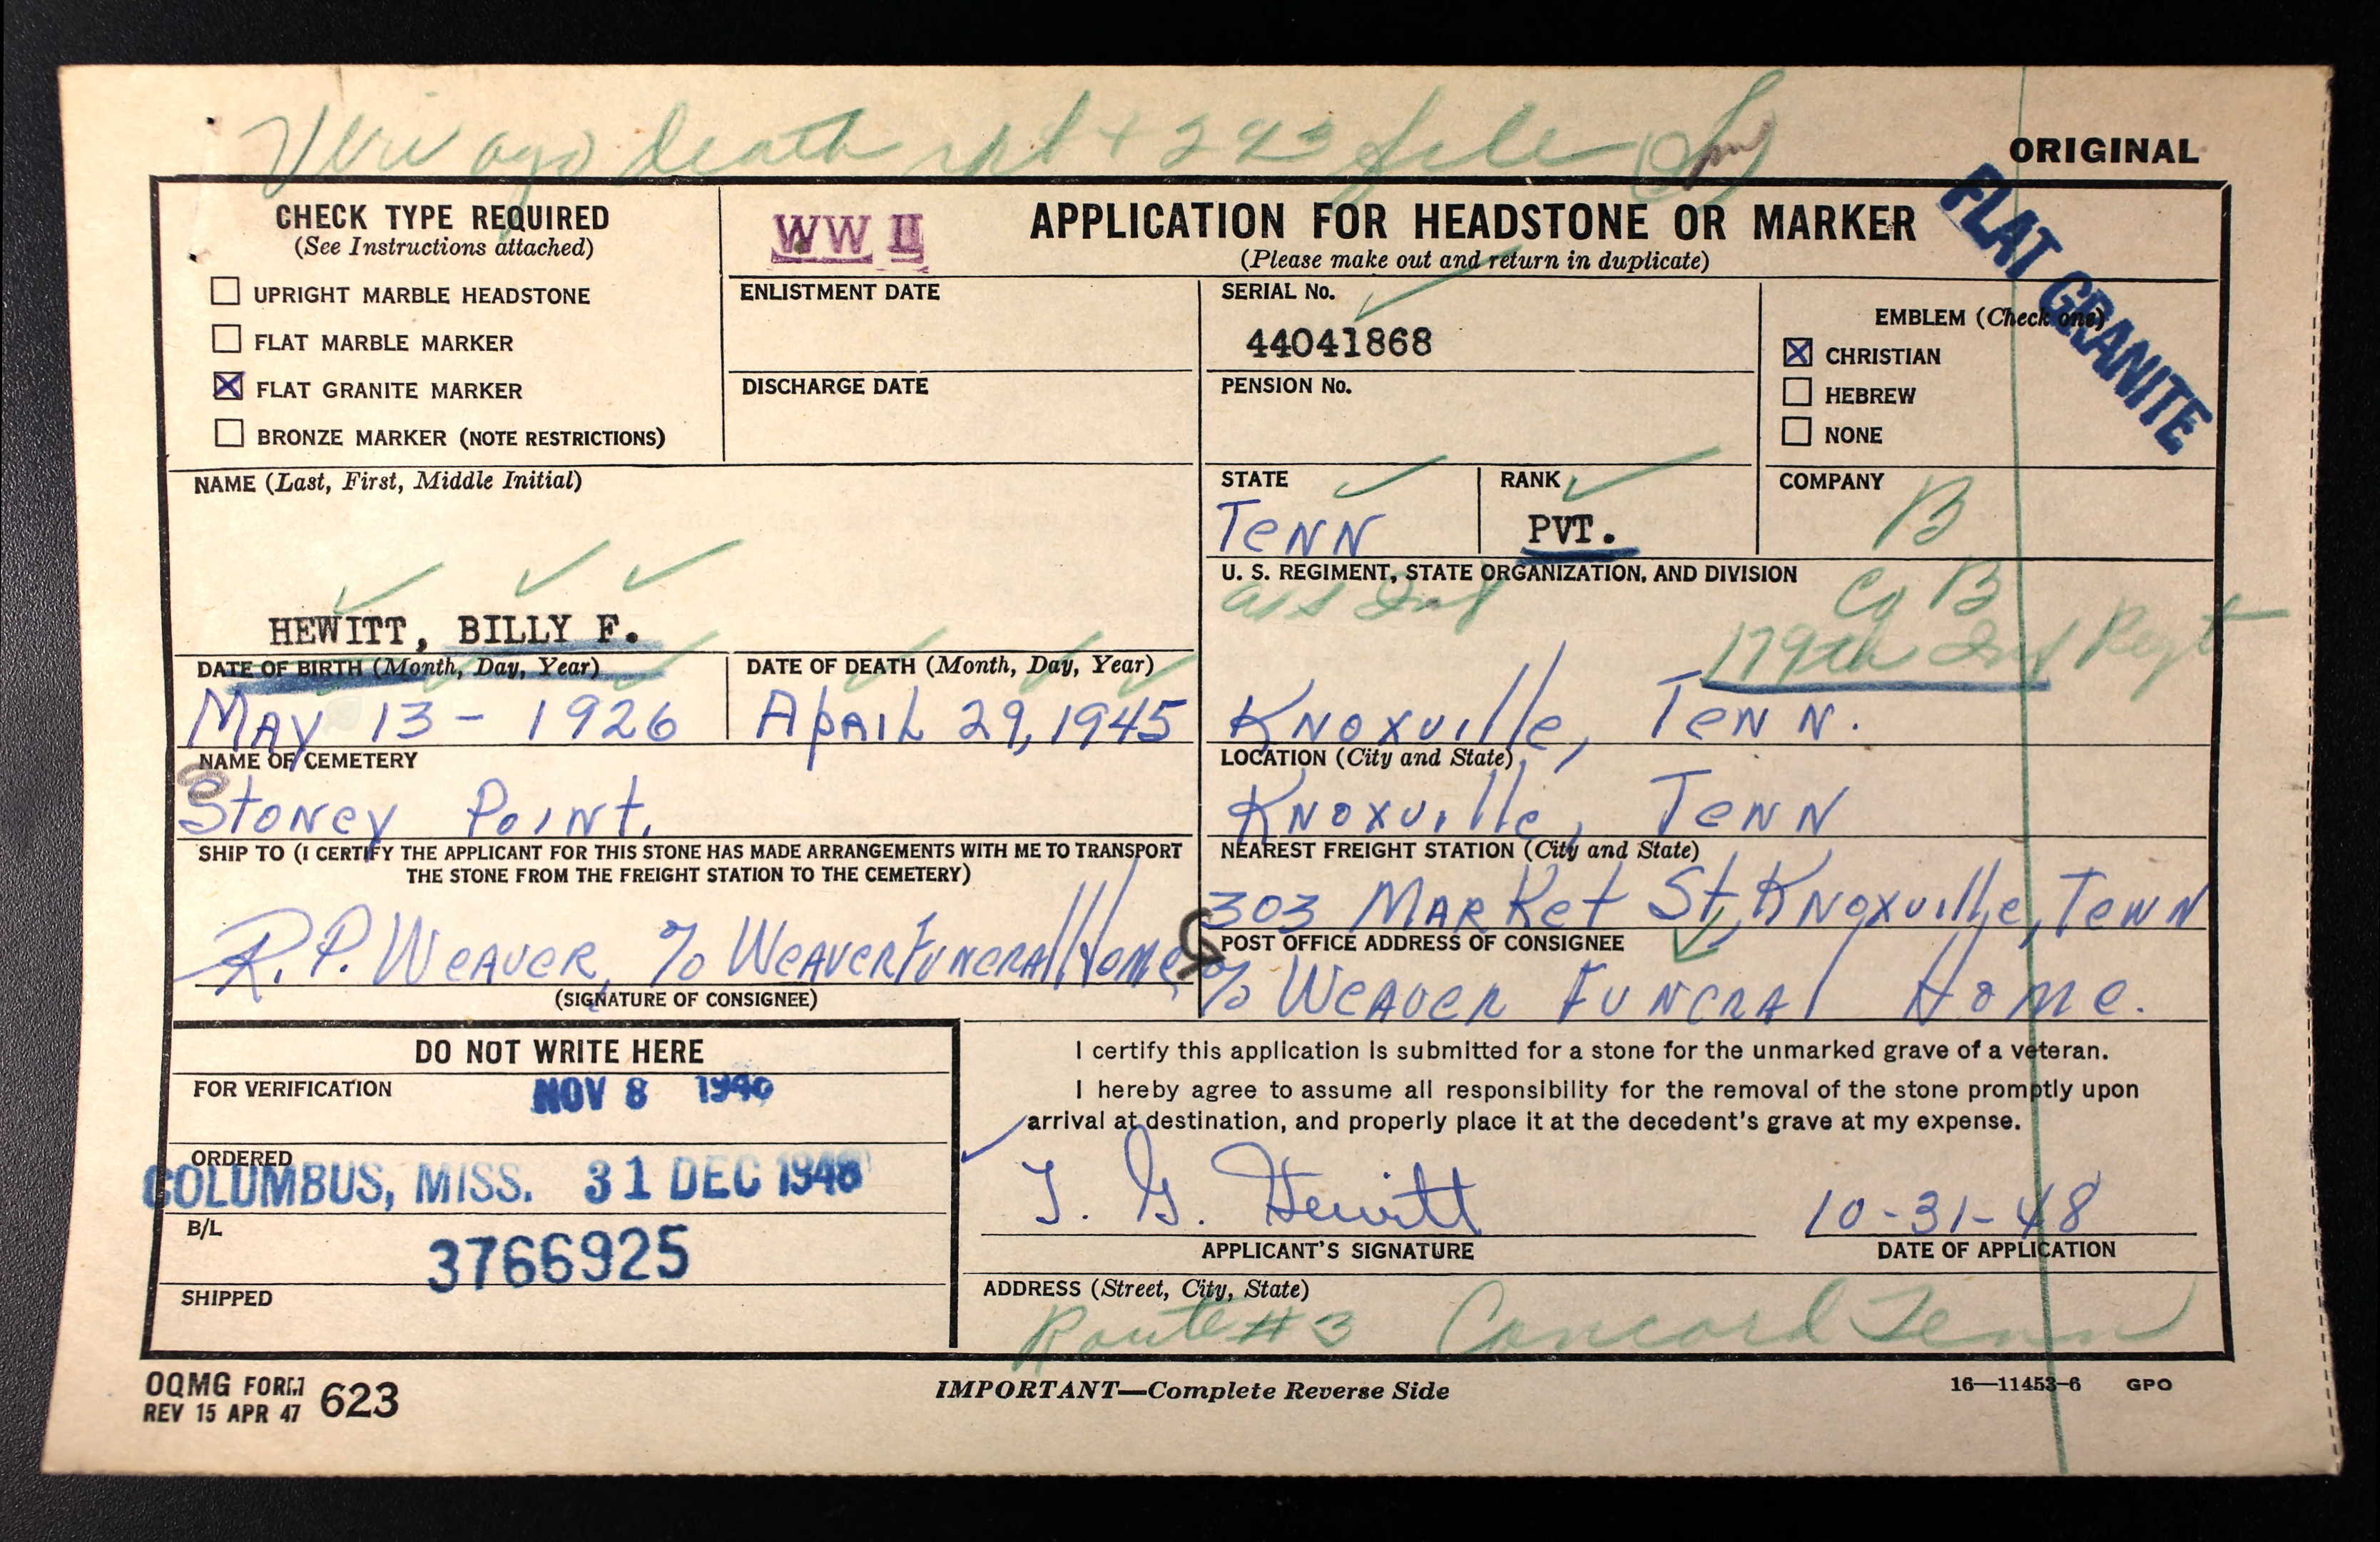 Veri ago death rpt + 293 file
ORIGINAL
CHECK TYPE REQUIRED
(See Instructions attached)
UPRIGHT MARBLE HEADSTONE
FLAT MARBLE MARKER
☒ FLAT GRANITE MARKER
BRONZE MARKER (NOTE RESTRICTIONS)
WW II
APPLICATION FOR HEADSTONE OR MARKER
(Please make out and return in duplicate)
FLAT GRANITE
ENLISTMENT DATE
DISCHARGE DATE
SERIAL No.
44041868
PENSION No.
EMBLEM (Check one)
☒ CHRISTIAN
HEBREW
NONE
NAME (Last, First, Middle Initial)
HEWITT, BILLY F.
STATE
Tenn
RANK
PVT.
COMPANY
B
U. S. REGIMENT, STATE ORGANIZATION, AND DIVISION
Co B
179th Inf Regt
Knoxville, Tenn.
DATE OF BIRTH (Month, Day, Year)
May 13 - 1926
DATE OF DEATH (Month, Day, Year)
April 29, 1945
NAME OF CEMETERY
Stoney Point.
LOCATION (City and State)
Knoxville, Tenn
SHIP TO (I CERTIFY THE APPLICANT FOR THIS STONE HAS MADE ARRANGEMENTS WITH ME TO TRANSPORT
THE STONE FROM THE FREIGHT STATION TO THE CEMETERY)
R. P. Weaver, % Weaver Funeral Home
(SIGNATURE OF CONSIGNEE)
NEAREST FREIGHT STATION (City and State)
303 Market St, Knoxville, Tenn
POST OFFICE ADDRESS OF CONSIGNEE
% Weaver Funeral Home.
DO NOT WRITE HERE
FOR VERIFICATION
NOV 8 1948
ORDERED
COLUMBUS, MISS. 31 DEC 1948
B/L
3766925
SHIPPED
I certify this application is submitted for a stone for the unmarked grave of a veteran.
I hereby agree to assume all responsibility for the removal of the stone promptly upon
arrival at destination, and properly place it at the decedent's grave at my expense.
T. G. Hewitt
10-31-48
APPLICANT'S SIGNATURE
DATE OF APPLICATION
ADDRESS (Street, City, State)
Route #3 Concord Tenn
OQMG FORM 623
REV 15 APR 47
IMPORTANT—Complete Reverse Side
16—11453-6 GPO